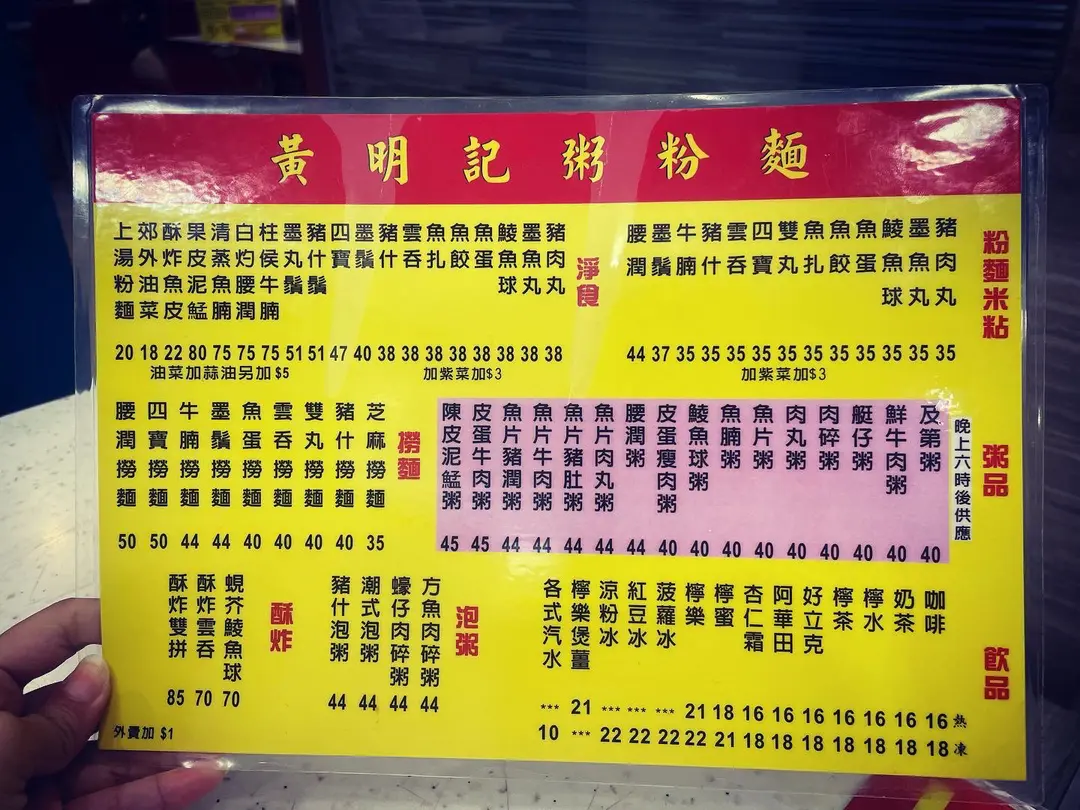 黃明記粥粉麵
粉麵米粘
豬肉丸 35
墨魚丸 35
鯪魚球 35
魚蛋 35
魚餃 35
魚扎 35
雙丸 35
四寶 35
雲吞 35
豬什 35
牛腩 35
墨鬚 37
腰潤 44
加紫菜加$3
淨食
豬肉丸 38
墨魚丸 38
鯪魚球 38
魚蛋 38
魚餃 38
魚扎 38
雲吞 38
豬什 38
墨鬚 40
四寶 47
豬什鬚 51
墨丸鬚 51
柱侯牛腩 75
白灼腰潤 75
清蒸魚腩 75
果皮泥鯭 80
酥炸魚皮 22
郊外油菜 18
上湯粉麵 20
加紫菜加$3
油菜加蒜油另加$5
粥品
晚上六時後供應
及第粥 40
鮮牛肉粥 40
艇仔粥 40
肉碎粥 40
肉丸粥 40
魚片粥 40
魚腩粥 40
鯪魚球粥 40
皮蛋瘦肉粥 40
腰潤粥 44
魚片肉丸粥 44
魚片豬肚粥 44
魚片牛肉粥 44
魚片豬潤粥 44
皮蛋牛肉粥 45
陳皮泥鯭粥 45
撈麵
芝麻撈麵 35
豬什撈麵 40
雙丸撈麵 40
雲吞撈麵 40
魚蛋撈麵 40
墨鬚撈麵 44
牛腩撈麵 44
四寶撈麵 50
腰潤撈麵 50
飲品
熱
凍
咖啡 16 18
奶茶 16 18
檸水 16 18
檸茶 16 18
好立克 16 18
阿華田 16 18
杏仁霜 16 18
檸蜜 18 21
檸樂 21 22
菠蘿冰 *** 22
紅豆冰 *** 22
涼粉冰 *** 22
檸樂煲薑 21 ***
各式汽水 *** 10
泡粥
方魚肉碎粥 44
蠔仔肉碎粥 44
潮式泡粥 44
豬什泡粥 44
酥炸
蜆芥鯪魚球 70
酥炸雲吞 70
酥炸雙拼 85
外賣加 $1